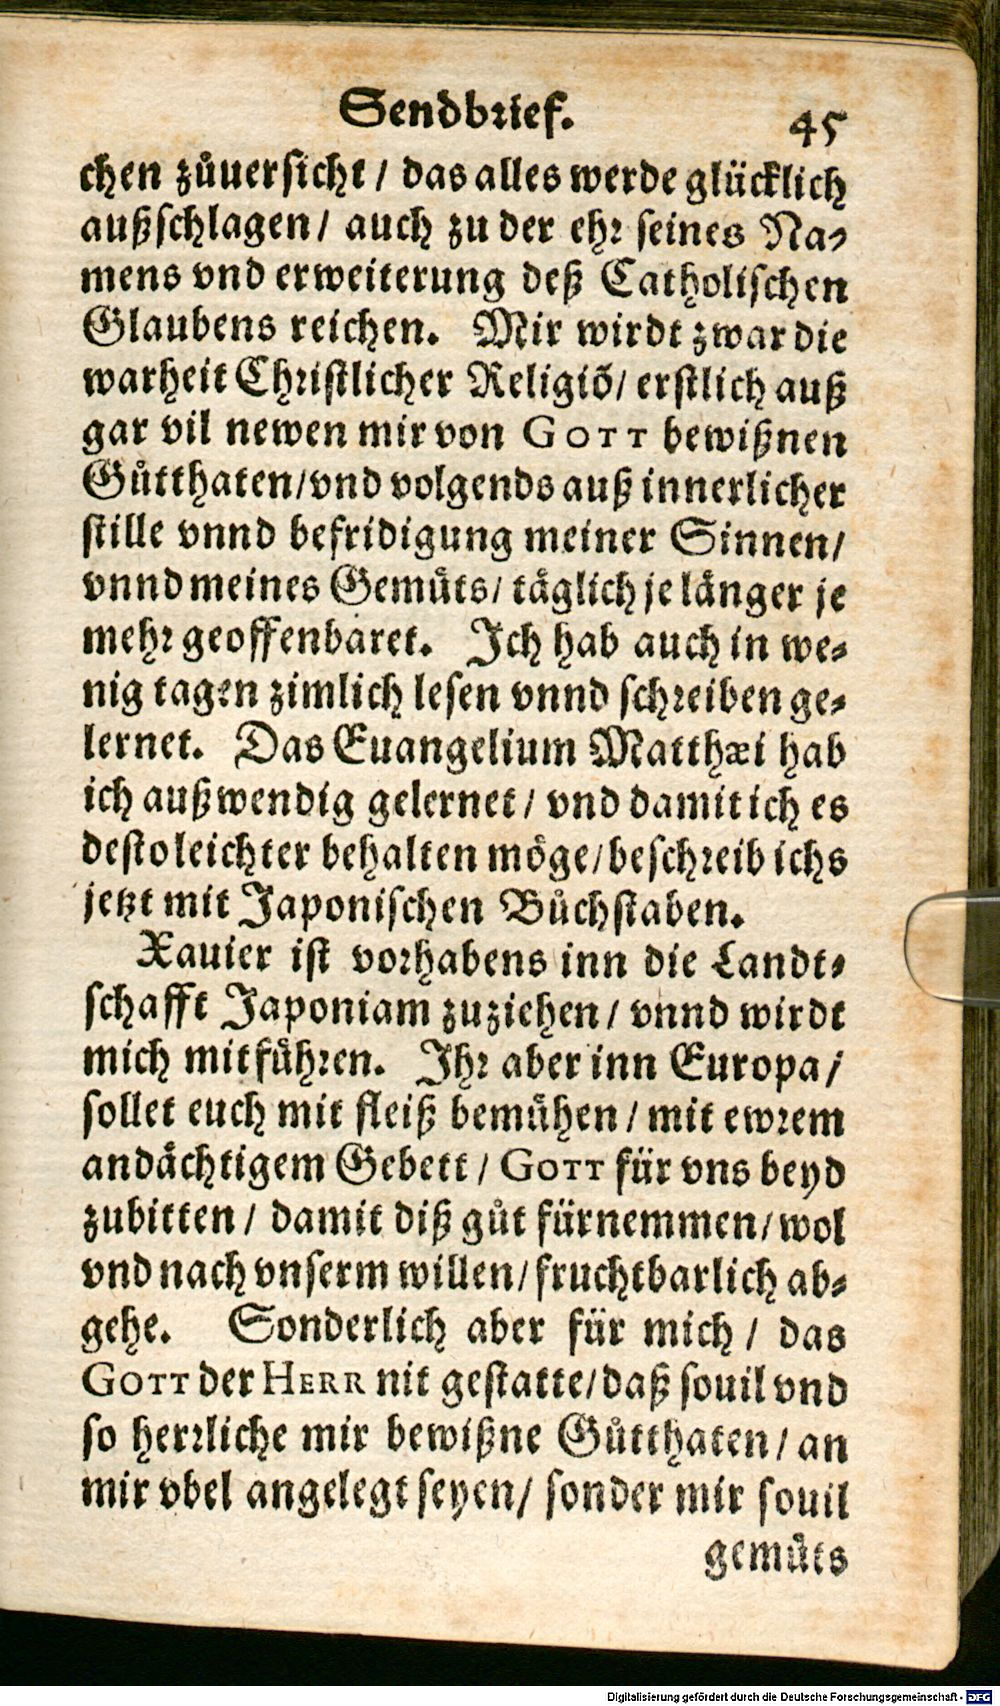 Sendbrief. 45
chen zůuersicht / das alles werde glücklich
außschlagen / auch zu der ehr seines Na-
mens vnd erweiterung deß Catholischen
Glaubens reichen. Mir wirdt zwar die
warheit Christlicher Religiõ / erstlich auß
gar vil newen mir von GOTT bewißnen
Gůtthaten / vnd volgends auß innerlicher
stille vnnd befridigung meiner Sinnen /
vnnd meines Gemůts / täglich je länger je
mehr geoffenbaret. Ich hab auch in we-
nig tagen zimlich lesen vnnd schreiben ge-
lernet. Das Euangelium Matthæi hab
ich außwendig gelernet / vnd damit ich es
desto leichter behalten möge / beschreib ichs
jetzt mit Japonischen Bůchstaben.
Xauier ist vorhabens inn die Landt-
schafft Japoniam zuziehen / vnnd wirdt
mich mitführen. Ihr aber inn Europa /
sollet euch mit fleiß bemühen / mit ewrem
andächtigem Gebett / GOTT für vns beyd
zubitten / damit diß gůt fürnemmen / wol
vnd nach vnserm willen / fruchtbarlich ab-
gehe. Sonderlich aber für mich / das
GOTT der HERR nit gestatte / daß souil vnd
so herrliche mir bewißne Gůtthaten / an
mir vbel angelegt seyen / sonder mir souil
gemůts
Digitalisierung gefördert durch die Deutsche Forschungsgemeinschaft - DFG